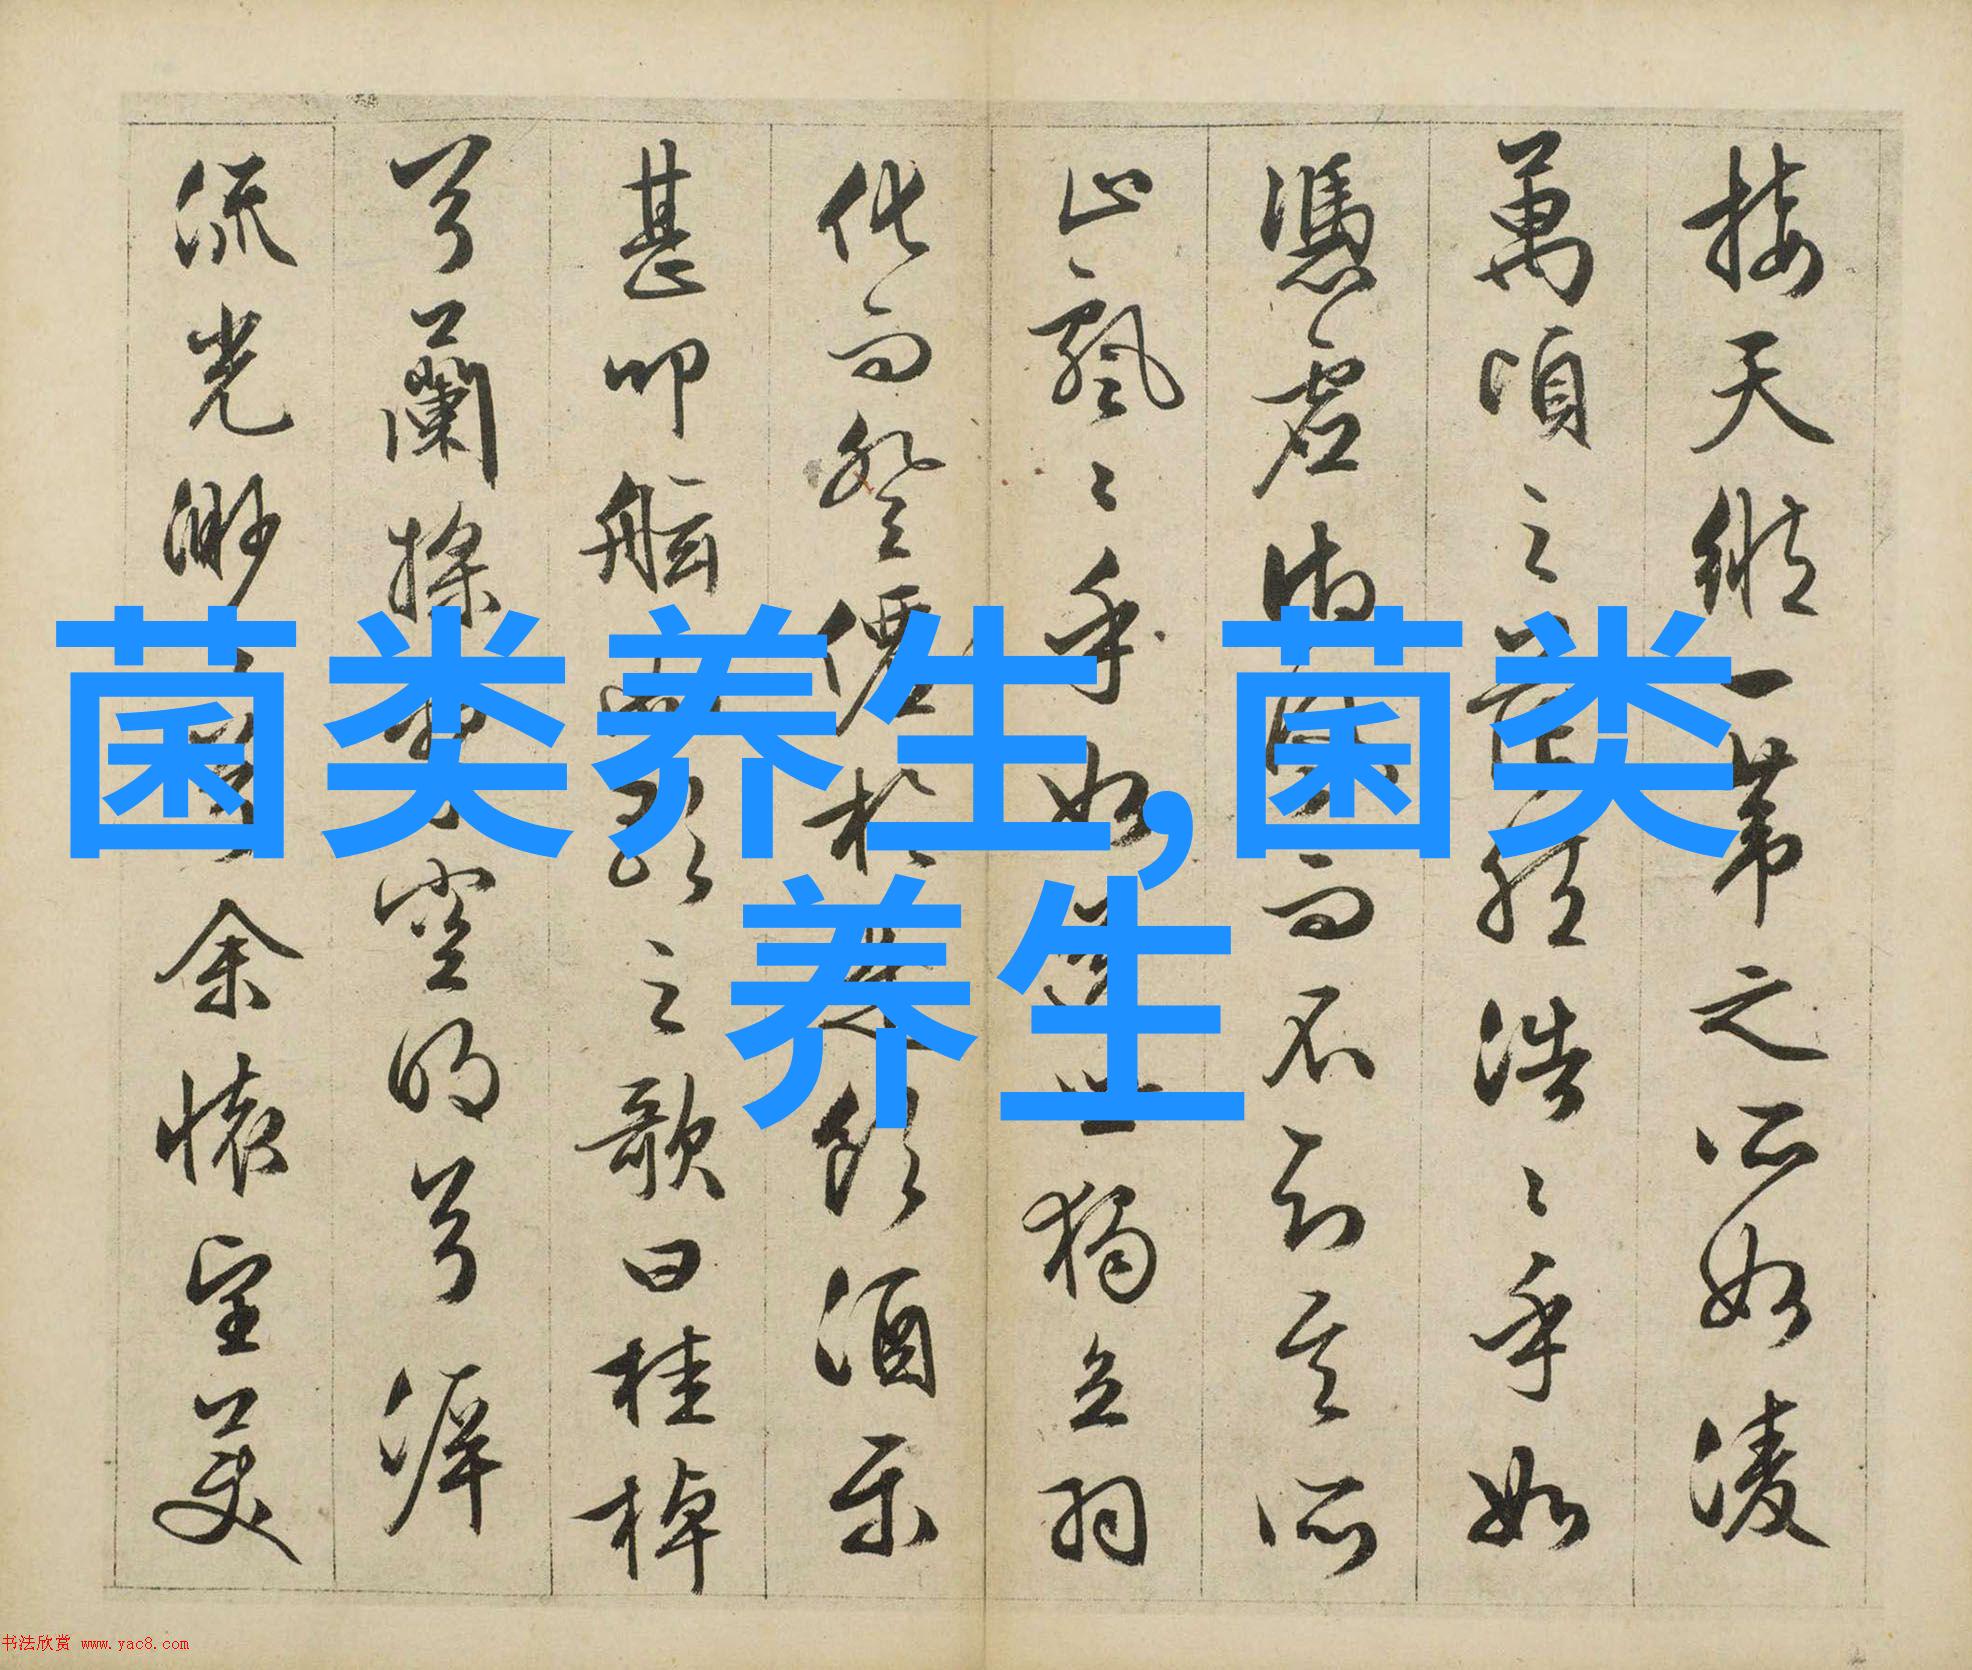 接天縱一葦之所如凌
萬頃之茫然浩〻乎如
憑虛御風而不知其所
止飄〻乎如遺世獨立羽
化而登僊於是飲酒樂
甚叩舷而歌之歌曰桂棹
兮蘭槳擊空明兮泝
流光渺〻兮余懷望美
菌类养生,菌类
养生
书法欣赏 www.yac8.com